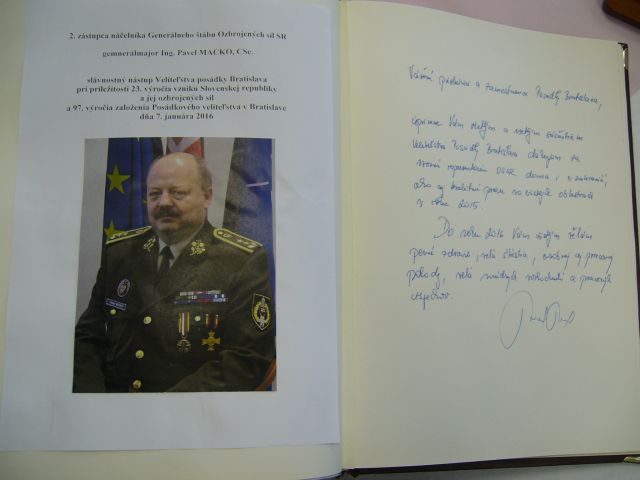 2. zástupca náčelníka Generálneho štábu Ozbrojených síl SR
gemnerálmajor Ing. Pavel MACKO, CSc.
slávnostný nástup Veliteľstva posádky Bratislava
pri príležitosti 23. výročia vzniku Slovenskej republiky
a jej ozbrojených síl
a 97. výročia založenia Posádkového veliteľstva v Bratislave
dňa 7. januára 2016
Vážení príslušníci a zamestnanci Posádky Bratislava,
úprimne Vám všetkým a všetkým
Veliteľstva Posádky Bratislava ďakujem za
vzornú reprezentáciu OSSR doma i v zahraničí,
ako aj kvalitnú prácu vo všetkých oblastiach
v roku 2015.
Do roku 2016 Vám všetkým želám
pevné zdravie, veľa šťastia, osobnej aj pracovnej
pohody, veľa rozhodnutí a pracovných
úspechov.